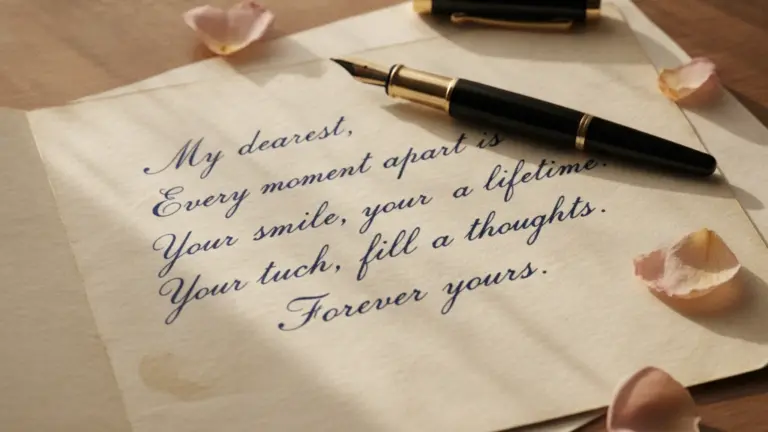 My dearest,
Every moment apart is
Your smile, your a lifetime.
Your tuch, fill a thoughts.
Forever yours.